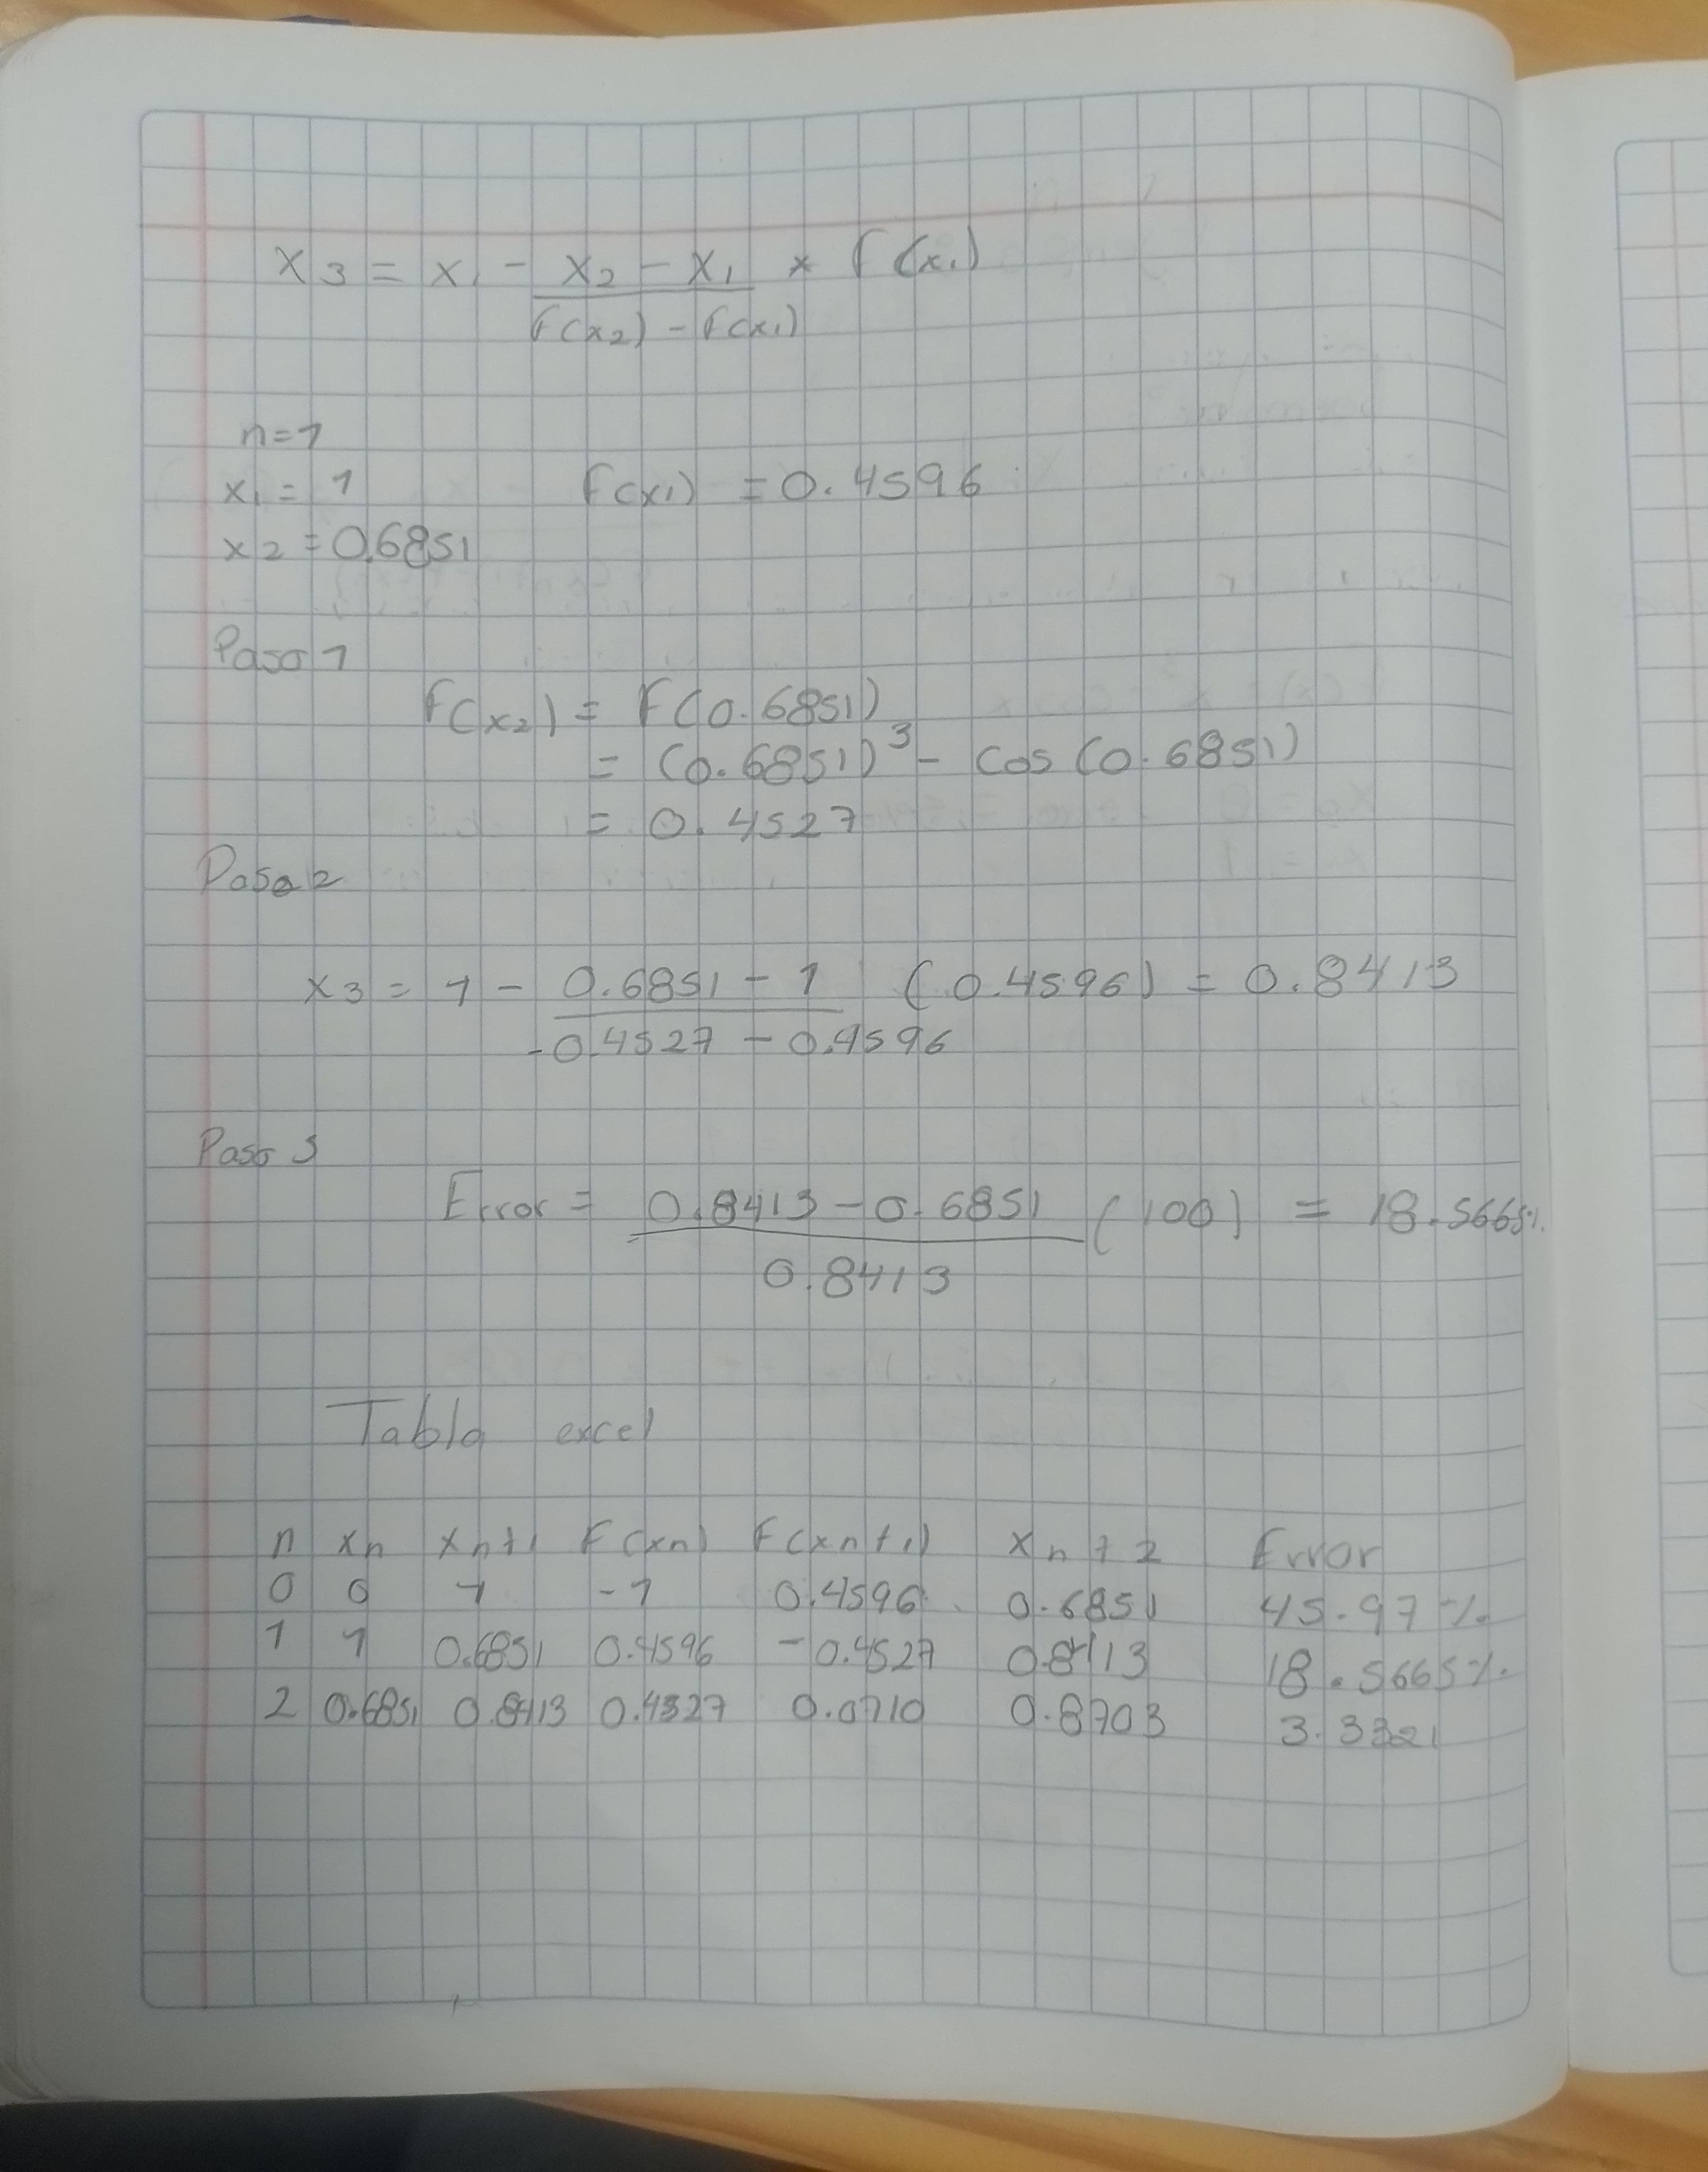 x3 = x1 - x2 - x1 * f(x1)
f(x2) - f(x1)
n=1
x1 = 1 f(x1) = 0.4596
x2 = 0.6851
Paso 1
f(x2) = f(0.6851)
= (0.6851)³ - cos(0.6851)
= 0.4527
Paso 2
x3 = 1 - 0.6851 - 1 (0.4596) = 0.8413
-0.4527 - 0.4596
Paso 3
Error = 0.8413 - 0.6851 (100) = 18.5665%
0.8413
Tabla excel
n xn xn+1 F(xn) F(xn+1) xn+2 Error
0 0 1 -1 0.4596 0.6851 45.97%
1 1 0.6851 0.4596 -0.4527 0.8413 18.5665%
2 0.6851 0.8413 0.4527 0.0710 0.8703 3.3321